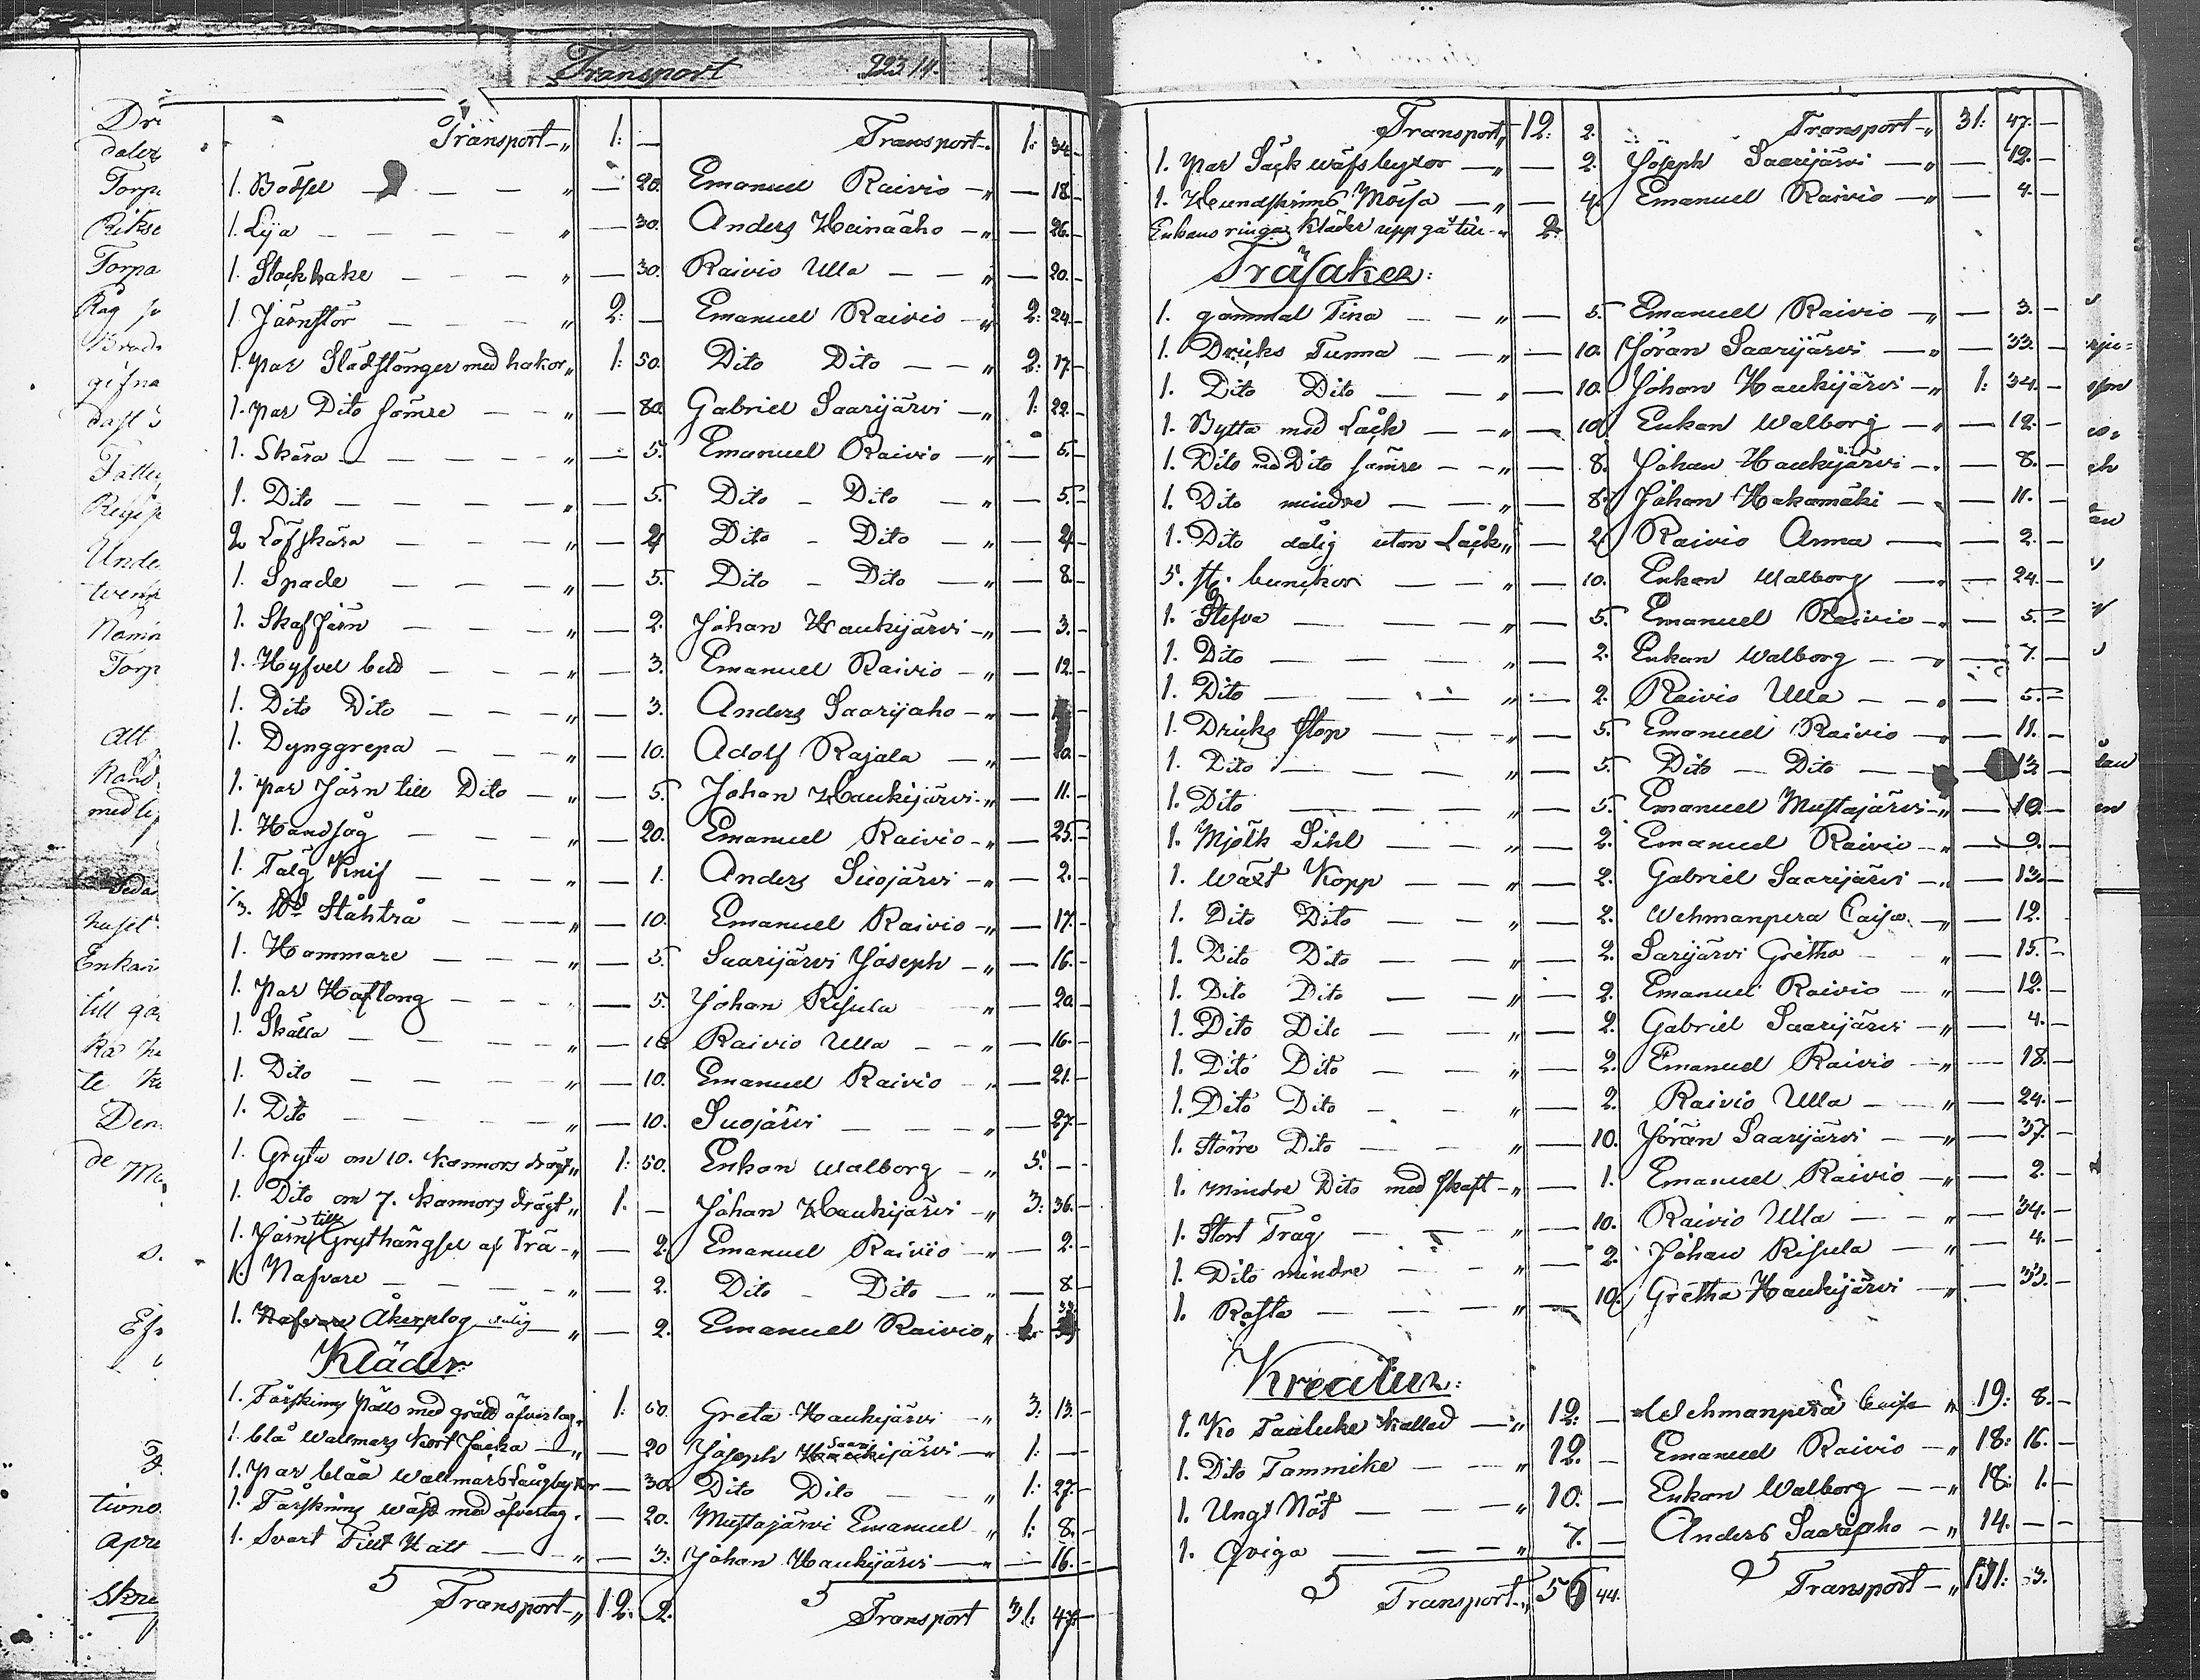 Transport 223 14.
Transport „ 1: — Transport „ 1: 34. —
1. Bödsel — „ — 20. Emanuel Raivio — „ — 18. —
1. Lya — „ — 30. Anders Heinaaho — „ — 26. —
1. Stackhake — „ — 30. Raivio Ulla — „ — 20. —
1. Järnstör — „ 2: — Emanuel Raivio — „ 2: 24. —
1. par Slädstänger med hakor „ 1: 50. Dito Dito — „ 2: 17. —
1. par Dito sämre — „ — 80. Gabriel Saarijärvi — „ 1: 22. —
1. Skära — „ — 5. Emanuel Raivio — „ — 5. —
1. Dito — „ — 5. Dito — Dito — „ — 5. —
2 Löfskära — „ — 4 Dito — Dito — „ — 4 —
1. Spade — „ — 5. Dito — Dito — „ — 8. —
1. Skafjärn — „ — 2. Johan Haukijärvi — „ — 3. —
1. Hyfvel beld — „ — 3. Emanuel Raivio — „ — 12. —
1. Dito Dito — „ — 3. Anders Saarijaho — „ —
1. Dynggrepa — „ — 10. Adolf Rajala — „ —
1. par Järn till Dito — „ — 5. Johan Haukijärvi — „ — 11. —
1. Handsåg — „ — 20. Emanuel Raivio — „ — 25. —
1. Talg Knif — „ — 1. Anders Suojärvi — „ — 2. —
1/3. Ståhltrå — „ — 10. Emanuel Raivio — „ — 17. —
1. Hammare — „ — 5. Saarijärvi Joseph — „ — 16. —
1. par Haftong — „ — 5. Johan Risula „ — 20. —
1. Skälla — „ — 10 Raivio Ulla — „ — 16. —
1. Dito — „ — 10. Emanuel Raivio — „ — 21. —
1. Dito — „ — 10. Suojärvi — „ — 27. —
1. Gryta om 10. kannors drägt „ 1: 50. Enkan Walborg — „ 5: — —
1. Dito om 7. kannors drägt „ 1. — Johan Haukijärvi — „ 3: 36. —
1. Järn till Grythängsel af Trä — „ — 2. Emanuel Raivio — „ — 2. —
1. Nafvare — „ — 2. Dito — Dito — „ — 8. —
1. Nafvare Åkerplog dålig — „ — 2. Emanuel Raivio „
Kläder:
1. Fårskinns Päls med grått öfvertag „ 1: 60. Greta Haukijärvi — „ 3: 13. —
1. blå Wallmars kort Jacka — „ — 20 Joseph Saarijärvi — „ 1: — —
1. par blåa Wallmars Långbyxor — 30. Dito Dito — „ 1: 27. —
1. Fårskinns wäst med öfvertag „ — 20. Mustajärvi Emanuel „ 1: 8. —
1. Svart Filt Hatt — „ — 3: Johan Haukijärvi — „ — 16. —
Transport „ 12: 2. Transport 31: 47. —
Transport „ 12: 2. Transport „ 31: 47. —
1. par Säck wäfs byxor — „ — 2. Joseph Saarijärvi — „ — 12. —
1. Hundskinns Mössa — „ — 4. Emanuel Raivio — „ — 4. —
Enkans ringa kläder uppgå till „ 2:
Träsaker:
1. gammal Tina — „ — 5. Emanuel Raivio — „ — 3. —
1. Dricks Tunna — „ — 10. Jöran Saarijärvi — „ — 33. —
1. Dito Dito — „ — 10. Johan Haukijärvi — „ 1: 34. —
1. Bytta med Låck — „ — 10. Enkan Walborg — „ — 12. —
1. Dito med Dito sämre — „ — 8. Johan Haukijärvi — „ — 8. —
1. Dito mindre — „ — 8. Johan Hakamäki — „ — 11. —
1. Dito dålig utan Låck „ — 2. Raivio Anna — „ — 2. —
5. st. bunkar — „ — 10. Enkan Walborg — „ — 24. —
1. Stefva — „ — 5. Emanuel Raivio — „ — 5. —
1. Dito — „ — 2. Enkan Walborg — „ — 7. —
1. Dito — „ — 2. Raivio Ulla — „ — 5. —
1. Dricks Stop — „ — 5. Emanuel Raivio — 11. —
1. Dito — „ — 5. Dito — Dito — 13. —
1. Dito — „ — 5. Emanuel Mustajärvi „ — 10. —
1. Mjölk Sihl — „ — 2. Emanuel Raivio — „ — 9. —
1. Wäxt Kopp — „ — 2. Gabriel Saarijärvi — „ — 13. —
1. Dito Dito — „ — 2. Wehmanpera Caisa — „ — 12. —
1. Dito Dito — „ — 2. Sarijärvi Gretha — „ — 15. —
1. Dito Dito — „ — 2. Emanuel Raivio — „ — 12. —
1. Dito Dito — „ — 2. Gabriel Saarijärvi — „ — 4. —
1. Dito Dito — „ — 2. Emanuel Raivio — „ — 18. —
1. Dito Dito — „ — 2. Raivio Ulla — „ — 24. —
1. större Dito — „ — 10. Jöran Saarijärvi — „ — 37. —
1. mindre Dito med skaft — „ — 1. Emanuel Raivio — „ — 2. —
1. Stort Tråg — „ — 10. Raivio Ulla — „ — 34. —
1. Dito mindre — „ — 2. Johan Risula — „ — 4. —
1. Rasta — „ — 10. Gretha Haukijärvi — „ — 33. —
Kreatur:
1. Ko Taaluke kallad — „ 12: — Wehmanperä Caisa „ 19: 8. —
1. Dito Tammike — „ 12. — Emanuel Raivio — „ 18: 16. —
1. Ungt Nöt — „ 10: — Enkan Walborg — „ 18: 1. —
1. Qviga — „ 7. — Anders Saarijaho — „ 14. — —
Transport „ 56 44. Transport — „ 131: 3.